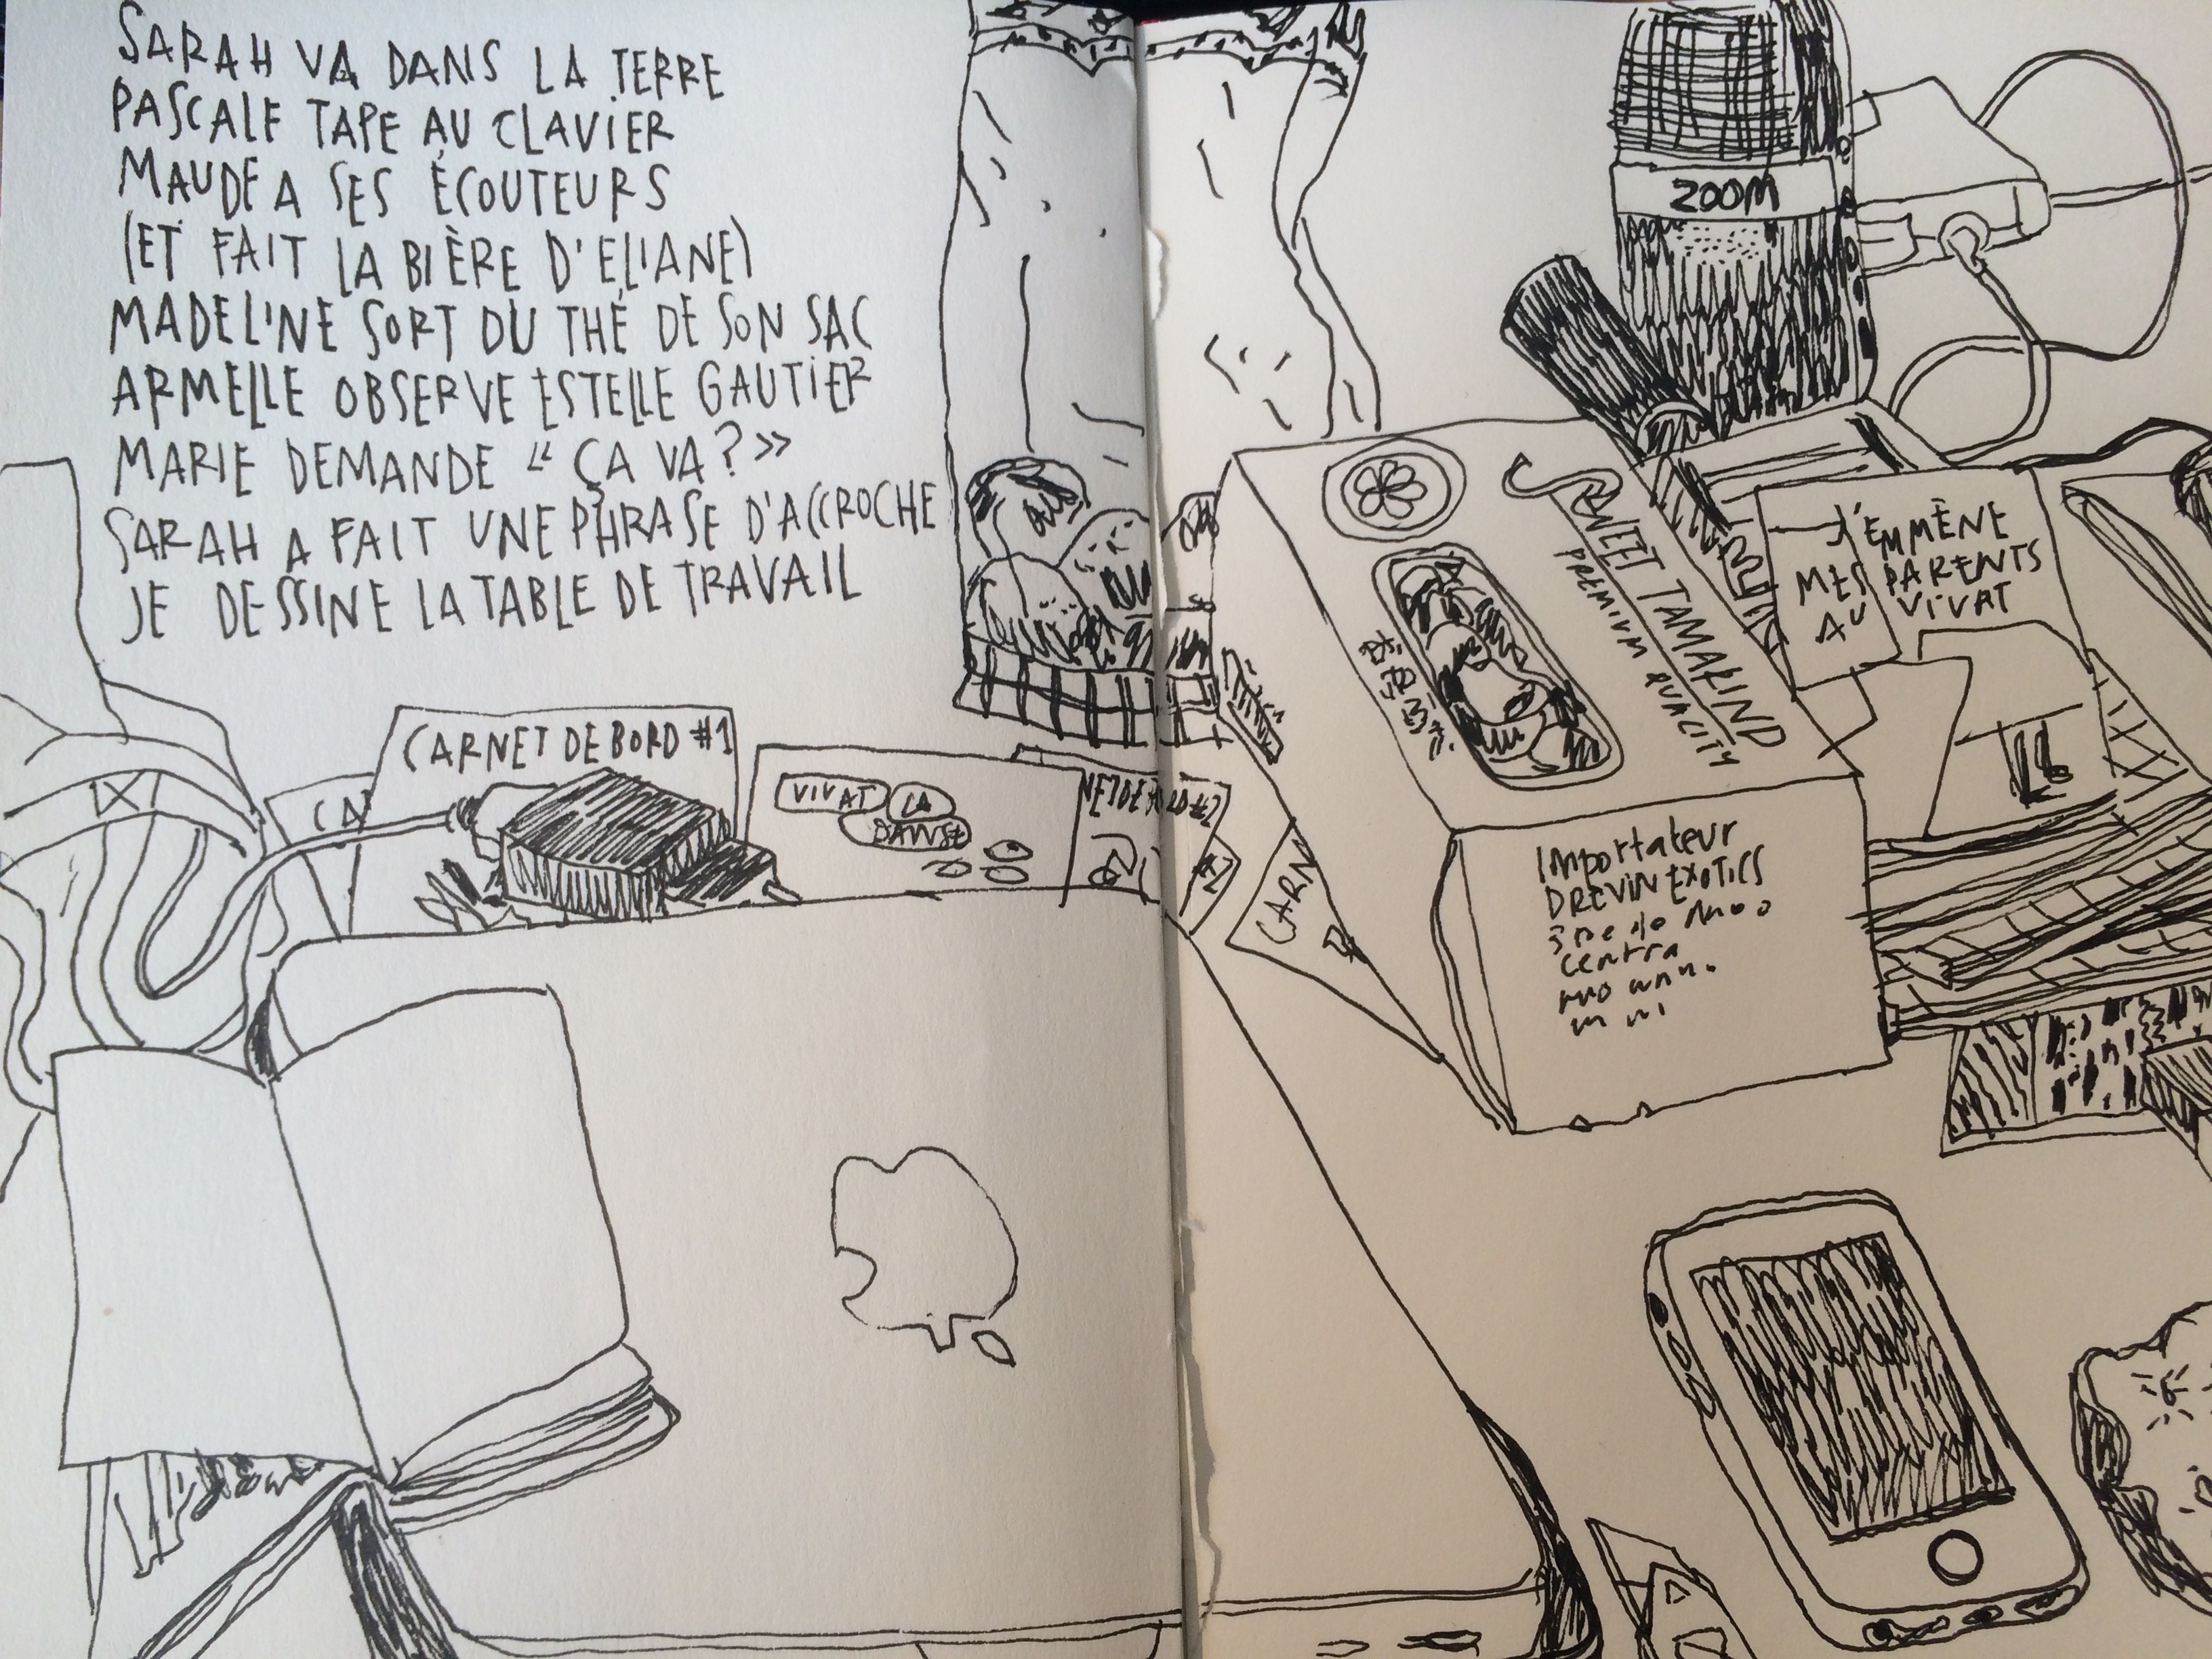 SARAH VA DANS LA TERRE
PASCALE TAPE AU CLAVIER
MAUDE A SES ÉCOUTEURS
(ET FAIT LA BIÈRE D'ELIANE)
MADELINE SORT DU THÉ DE SON SAC
ARMELLE OBSERVE ESTELLE GAUTIER
MARIE DEMANDE « ÇA VA ? »
SARAH A FAIT UNE PHRASE D'ACCROCHE
JE DESSINE LA TABLE DE TRAVAIL
CARNET DE BORD #1
CA
VIVAT LA
DANSE
#2
CARN
ZOOM
SWEET TAMARIND
PREMIUM QUACITY
J'EMMÈNE
MES PARENTS
AU VIVAT
Importateur
DREVIN EXOTICS
centra